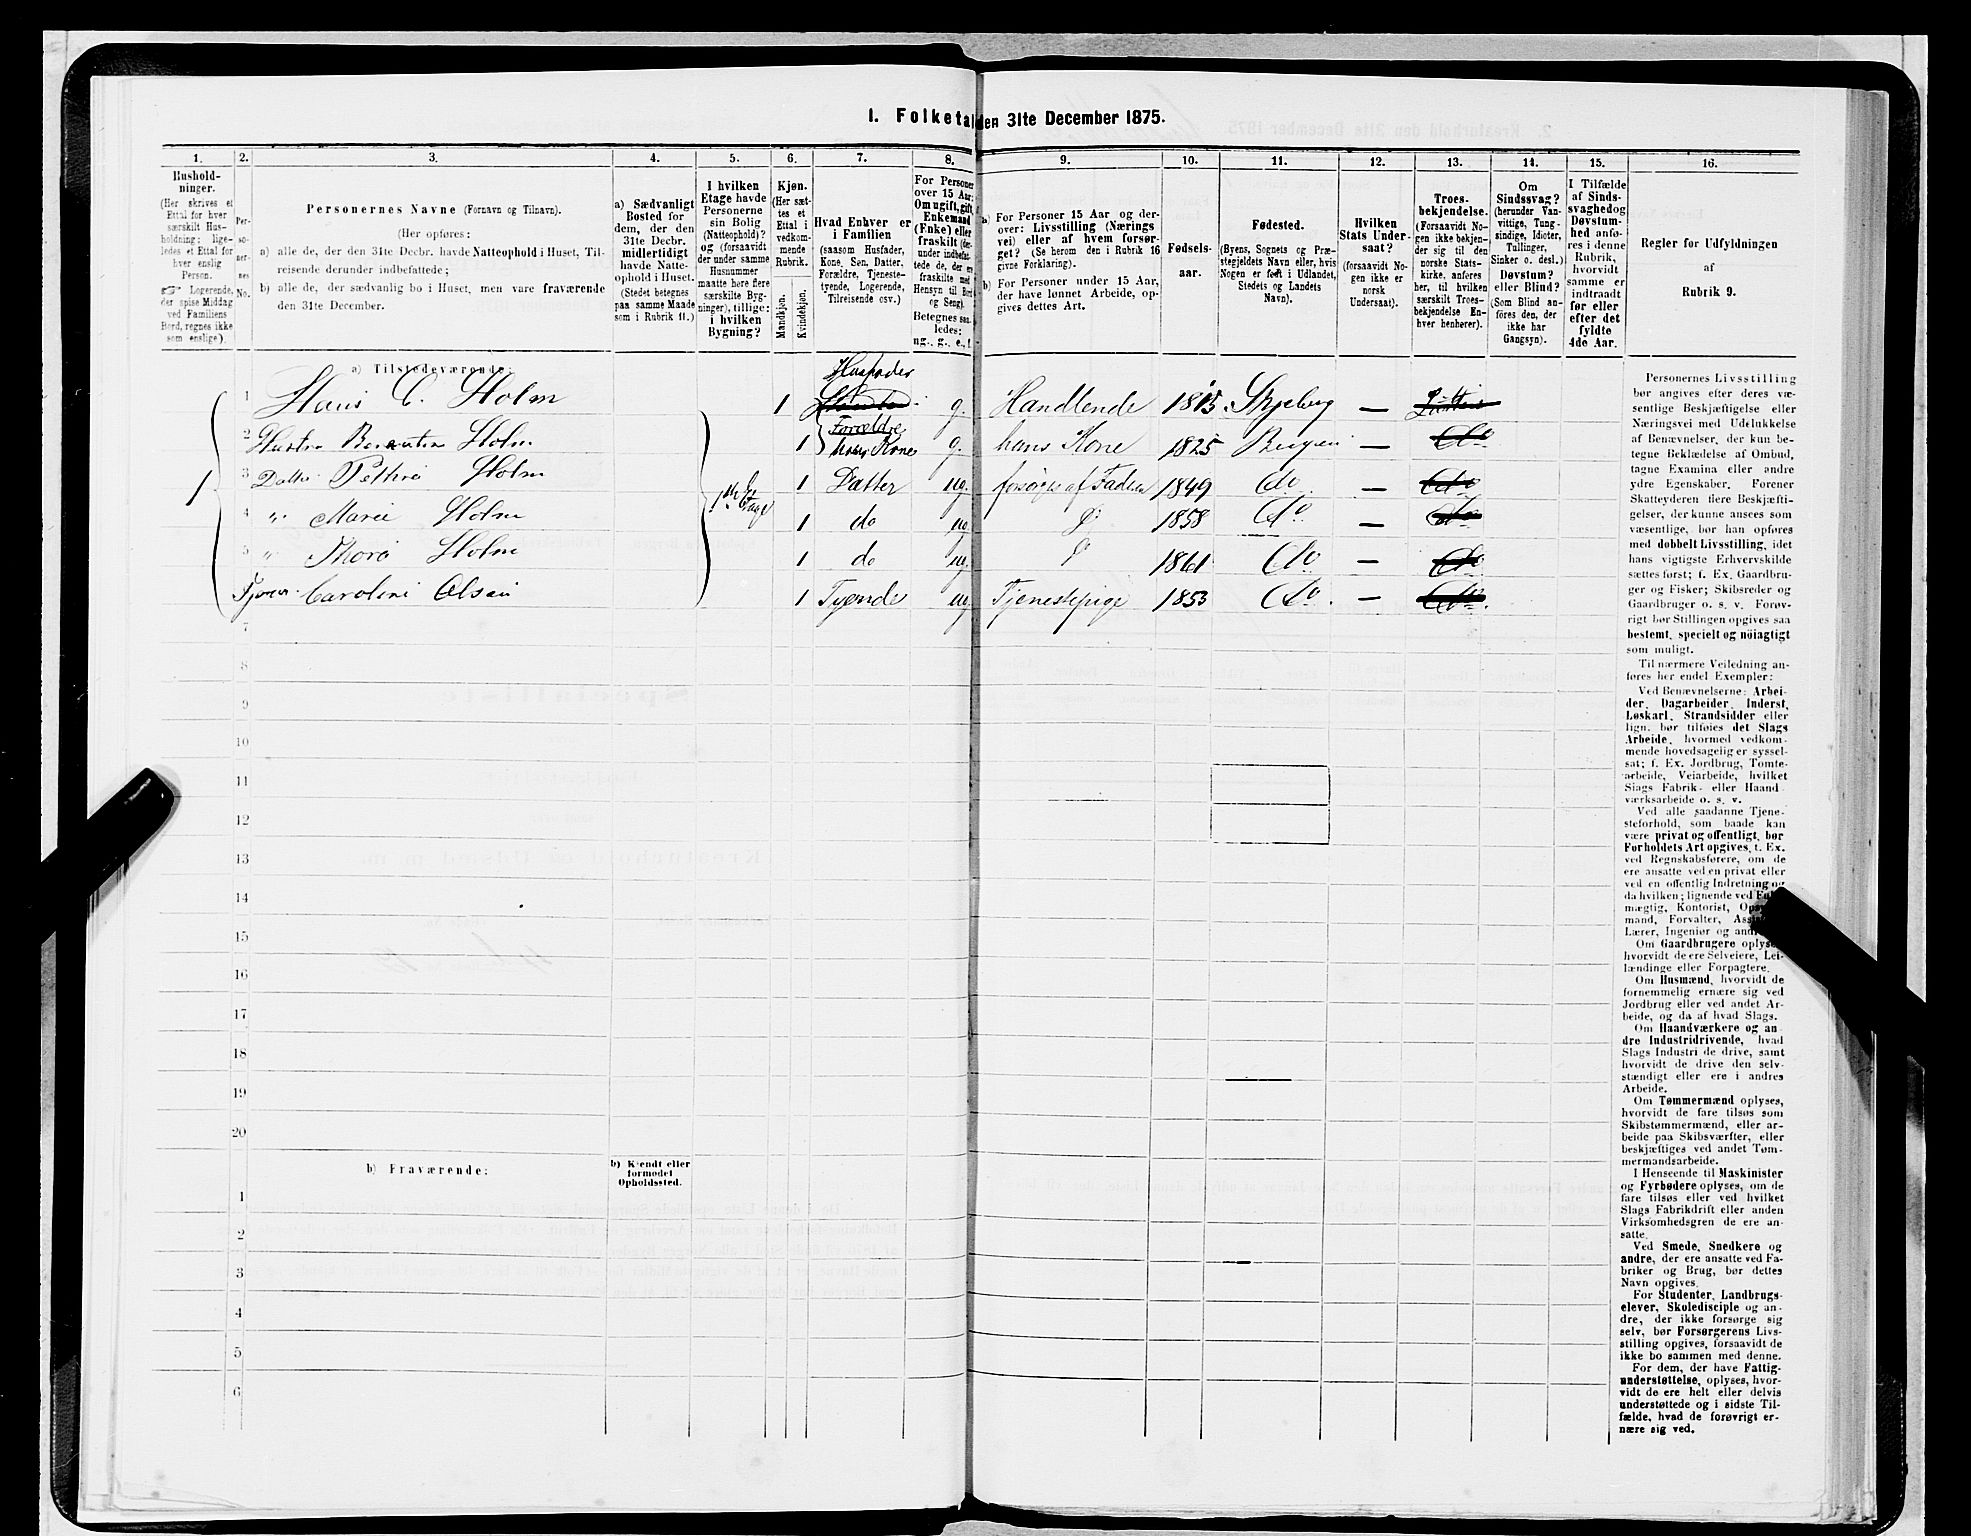 1. Folketal den 31te December 1875.
1. 2. 3. 4. 5. 6. 7. 8. 9. 10. 11. 12. 13. 14. 15. 16.
Husholdninger.
(Her skrives et
Ettal for hver
særskilt Husholdning;
ligeledes et Ettal for
hver enslig
Person.
Logerende,
der spise Middag
ved Familiens
Bord, regnes ikke
som enslige).
Personernes No.
Personernes Navne (Fornavn og Tilnavn).
(Her opføres:
a) alle de, der den 31te Decbr. havde Natteophold i Huset, Tilreisende
derunder indbefattede;
b) alle de, der sædvanlig bo i Huset, men vare fraværende
den 31te December.
a) Sædvanligt
Bosted for
dem, der den
31te Decbr.
midlertidigt
havde Natteophold
i Huset.
(Stedet betegnes
paa samme Maade
som i Rubrik 11.)
I hvilken
Etage havde
Personerne
sin Bolig
(Natteophold)?
og (forsaavidt
der under samme
Husnummer
maatte høre flere
særskilte Bygninger),
tillige:
i hvilken
Bygning?
Kjøn.
(Her sættes
et
Ettal i
vedkommende
Rubrik.
Mandkjøn.
Kvindekjøn.
Hvad Enhver er
i Familien
(saasom Husfader,
Kone, Søn, Datter,
Forældre, Tjenestetyende,
Logerende,
Tilreisende osv.)
For Personer
over 15 Aar:
Om ugift, gift,
Enkemand
(Enke) eller
fraskilt
Betegnes saaledes:
ug., g., e., f.
a) For Personer 15 Aar og derover:
Livsstilling (Næringsvei)
eller af hvem forsørget?
(Se herom den i Rubrik 16
givne Forklaring).
b) For Personer under 15 Aar,
der have lønnet Arbeide, opgives
dettes Art.
Fødselsaar.
Fødested.
(Byens, Sognets og Præstegjeldets
Navn eller, hvis
Nogen er født i Udlandet,
Stedets og Landets
Navn).
Hvilken
Stats Undersaat?
(forsaavidt Nogen
ikke er
norsk
Undersaat).
Troesbekjendelse.
(Forsaavidt Nogen
ikke bekjender
sig til den
norske Statskirke,
anføres
her, til hvilken
særskilt Troesbekjendelse
Enhver
henhører).
Om
Sindssvag?
(herunder Vanvittige,
Tungsindige,
Idioter,
Tullinger,
Sinker o. desl.)
Døvstum?
eller Blind?
(Som Blind anføres
den, der
ikke har
Gangsyn).
I Tilfælde
af Sindssvaghed
og
Døvstumhed
anføres
i denne
Rubrik,
hvorvidt
samme er
indtraadt
før eller
efter det
fyldte
4de Aar.
Regler for Udfyldningen
af
Rubrik 9.
a) Tilstedeværende:
1 Hans C. Holm 1 Husfader g. Handlende 1815 Skjeberg —
2 Hustru Holm 1 hans Kone g. hans Kone 1825 Bergen —
1 3 Datter Holm 1ste Etage 1 Datter ug. forsørges af Faderen 1849 do —
4 " Marie Holm 1 do ug. 1858 do —
5 " Thora Holm 1 do ug. 1861 do —
Caroline Olsen 1 Tyende ug. Tjenestepige 1853 do. —
7
8
9
10
11
12
13
14
15
16
17
18
19
20
b) Fraværende:
b) Kjendt eller
formodet
Opholdssted.
1
2
3
4
5
6
Personernes Livsstilling
bør angives efter deres væsentlige
Beskjæftigelse eller
Næringsvei med Udelukkelse
af Benævnelser, der kun betegne
Beklædelse af Ombud,
tagne Examina eller andre
ydre Egenskaber. Forener
Skatteyderen flere Beskjæftigelser,
der kunne ansees som
væsentlige, bør han opføres
med dobbelt Livsstilling, idet
hans vigtigste Erhvervskilde
sættes først; f. Ex. Gaardbruger
og Fisker; Skibsreder og
Gaardbruger o. s. v. Forøvrigt
bør Stillingen opgives saa
bestemt, specielt og nöiagtigt
som muligt.
Til nærmere Veiledning anføres
her endel Exempler:
Ved Benævnelserne: Arbeider,
Dagarbeider, Inderst,
Løskarl, Strandsidder eller
lign. bør tilføies det Slags
Arbeide, hvormed vedkommende
hovedsagelig er sysselsat;
f. Ex. Jordbrug, Tomtearbeide,
Veiarbeide, hvilket
Slags Fabrik- eller Haandværksarbeide
o. s. v.
Ved alle saadanne Tjenesteforhold,
som baade kan
være privat og offentligt, bør
Forholdets Art opgives, f. Ex.
ved Regnskabsførere, om de
ere ansatte ved en privat eller
ved en offentlig Indretning og
da hvilken; lignende ved
Kontorist,
Forvalter,
Lærer, Ingeniør og
Om Gaardbrugere
hvorvidt de ere Selveiere, Leilændinge
eller Forpagtere.
Om Husmænd, hvorvidt de
fornemmelig ernære sig ved
Jordbrug eller ved andet Arbeide,
og da af hvad Slags.
Om Haandværkere og andre
Industridrivende, hvad
Slags Industri de drive, samt
hvorvidt de drive den selvstændigt
eller ere i andres
Arbeide.
Om Tømmermænd oplyses,
hvorvidt de fare tilsøs som
Skibstømmermænd, eller arbeide
paa Skibsværfter, eller
beskjæftiges ved andet Tømmermandsarbeide.
I Henseende til Maskinister
og Fyrbødere oplyses, om de
fare tilsøs eller ved hvilket
Slags Fabrikdrift eller anden
Virksomhedsgren de ere ansatte.
Ved Smede, Snedkere og
andre, der ere ansatte ved Fabriker
og Brug, bør dettes
Navn opgives.
For Studenter, Landbrugselever,
Skoledisciple og andre,
der ikke forsørge sig
selv, bør Forsørgerens Livsstilling
opgives, forsaavidt de
ikke bo sammen med denne.
For dem, der have Fattigunderstøttelse,
oplyses, hvorvidt
de ere helt eller delvis
understøttede og i sidste Tilfælde,
hvad de forøvrigt ernære
sig ved.